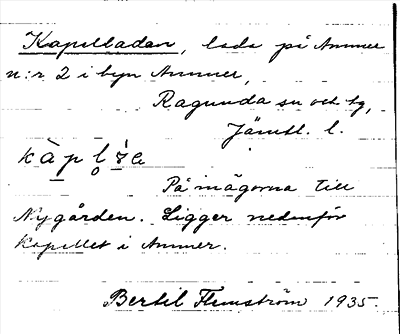 Kapelladan, lada på Ammer
n:r 2 i byn Ammer,
Ragunda sn och tg,
Jämtl. l.
På inägorna till
Nygården. Ligger nedanför
kapellet i Ammer.
Bertil Flemström 1935.